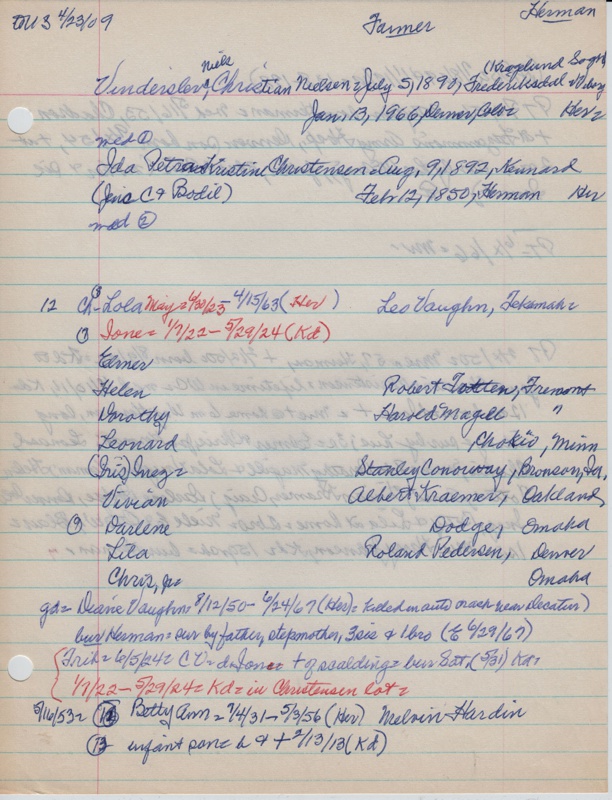 4/23/09
Farmer
Herman
Niels
Vinderslev, Christian Nielsen = July 5, 1890, Frederikshol
Jan, 13, 1966, Denver, Colo = Her
med ①
Ida Petra Kristine Christensen = Aug, 9, 1892, Kennard
(Jens C & Bodil) Feb 12, 1850, Herman Her
med ②
12 Ch - Lola May = 6/30/23 - 4/15/63 (Her) Leo Vaughn, Tekamah =
Ione = 1/7/22 - 5/29/24 (Kd)
Elmer
Helen Robert Totten, Fremont
Dorothy Harold Magell "
Leonard Chokio, Minn
(Iris) Inez = Stanley Conoway, Bronson, Ia,
Vivian Albert Kraemer, Oakland,
Darlene Dodge, Omaha
Lila Roland Pedersen, Denver
Chris, Jr = Omaha
gd = Diane Vaughn = 8/12/50 - 6/24/67 (Her) = killed in auto crash near Decatur)
bur Herman = sur by father, stepmother, 3 sis & 1 bro (E 6/29/67)
Trib = 6/5/24 = CV = d = Ione = + of scalding = bur Sat, (5/31) Kd =
1/7/22 - 5/29/24 = Kd = in Christensen lot =
5/16/53 = Betty Ann = 7/4/31 - 5/3/56 (Her) Melvin Hardin
⑬ infant son = b & + 2/13/13 (Kd)